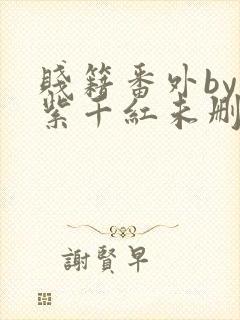 賤籍番外by
紫千紅未刪
謝賢早